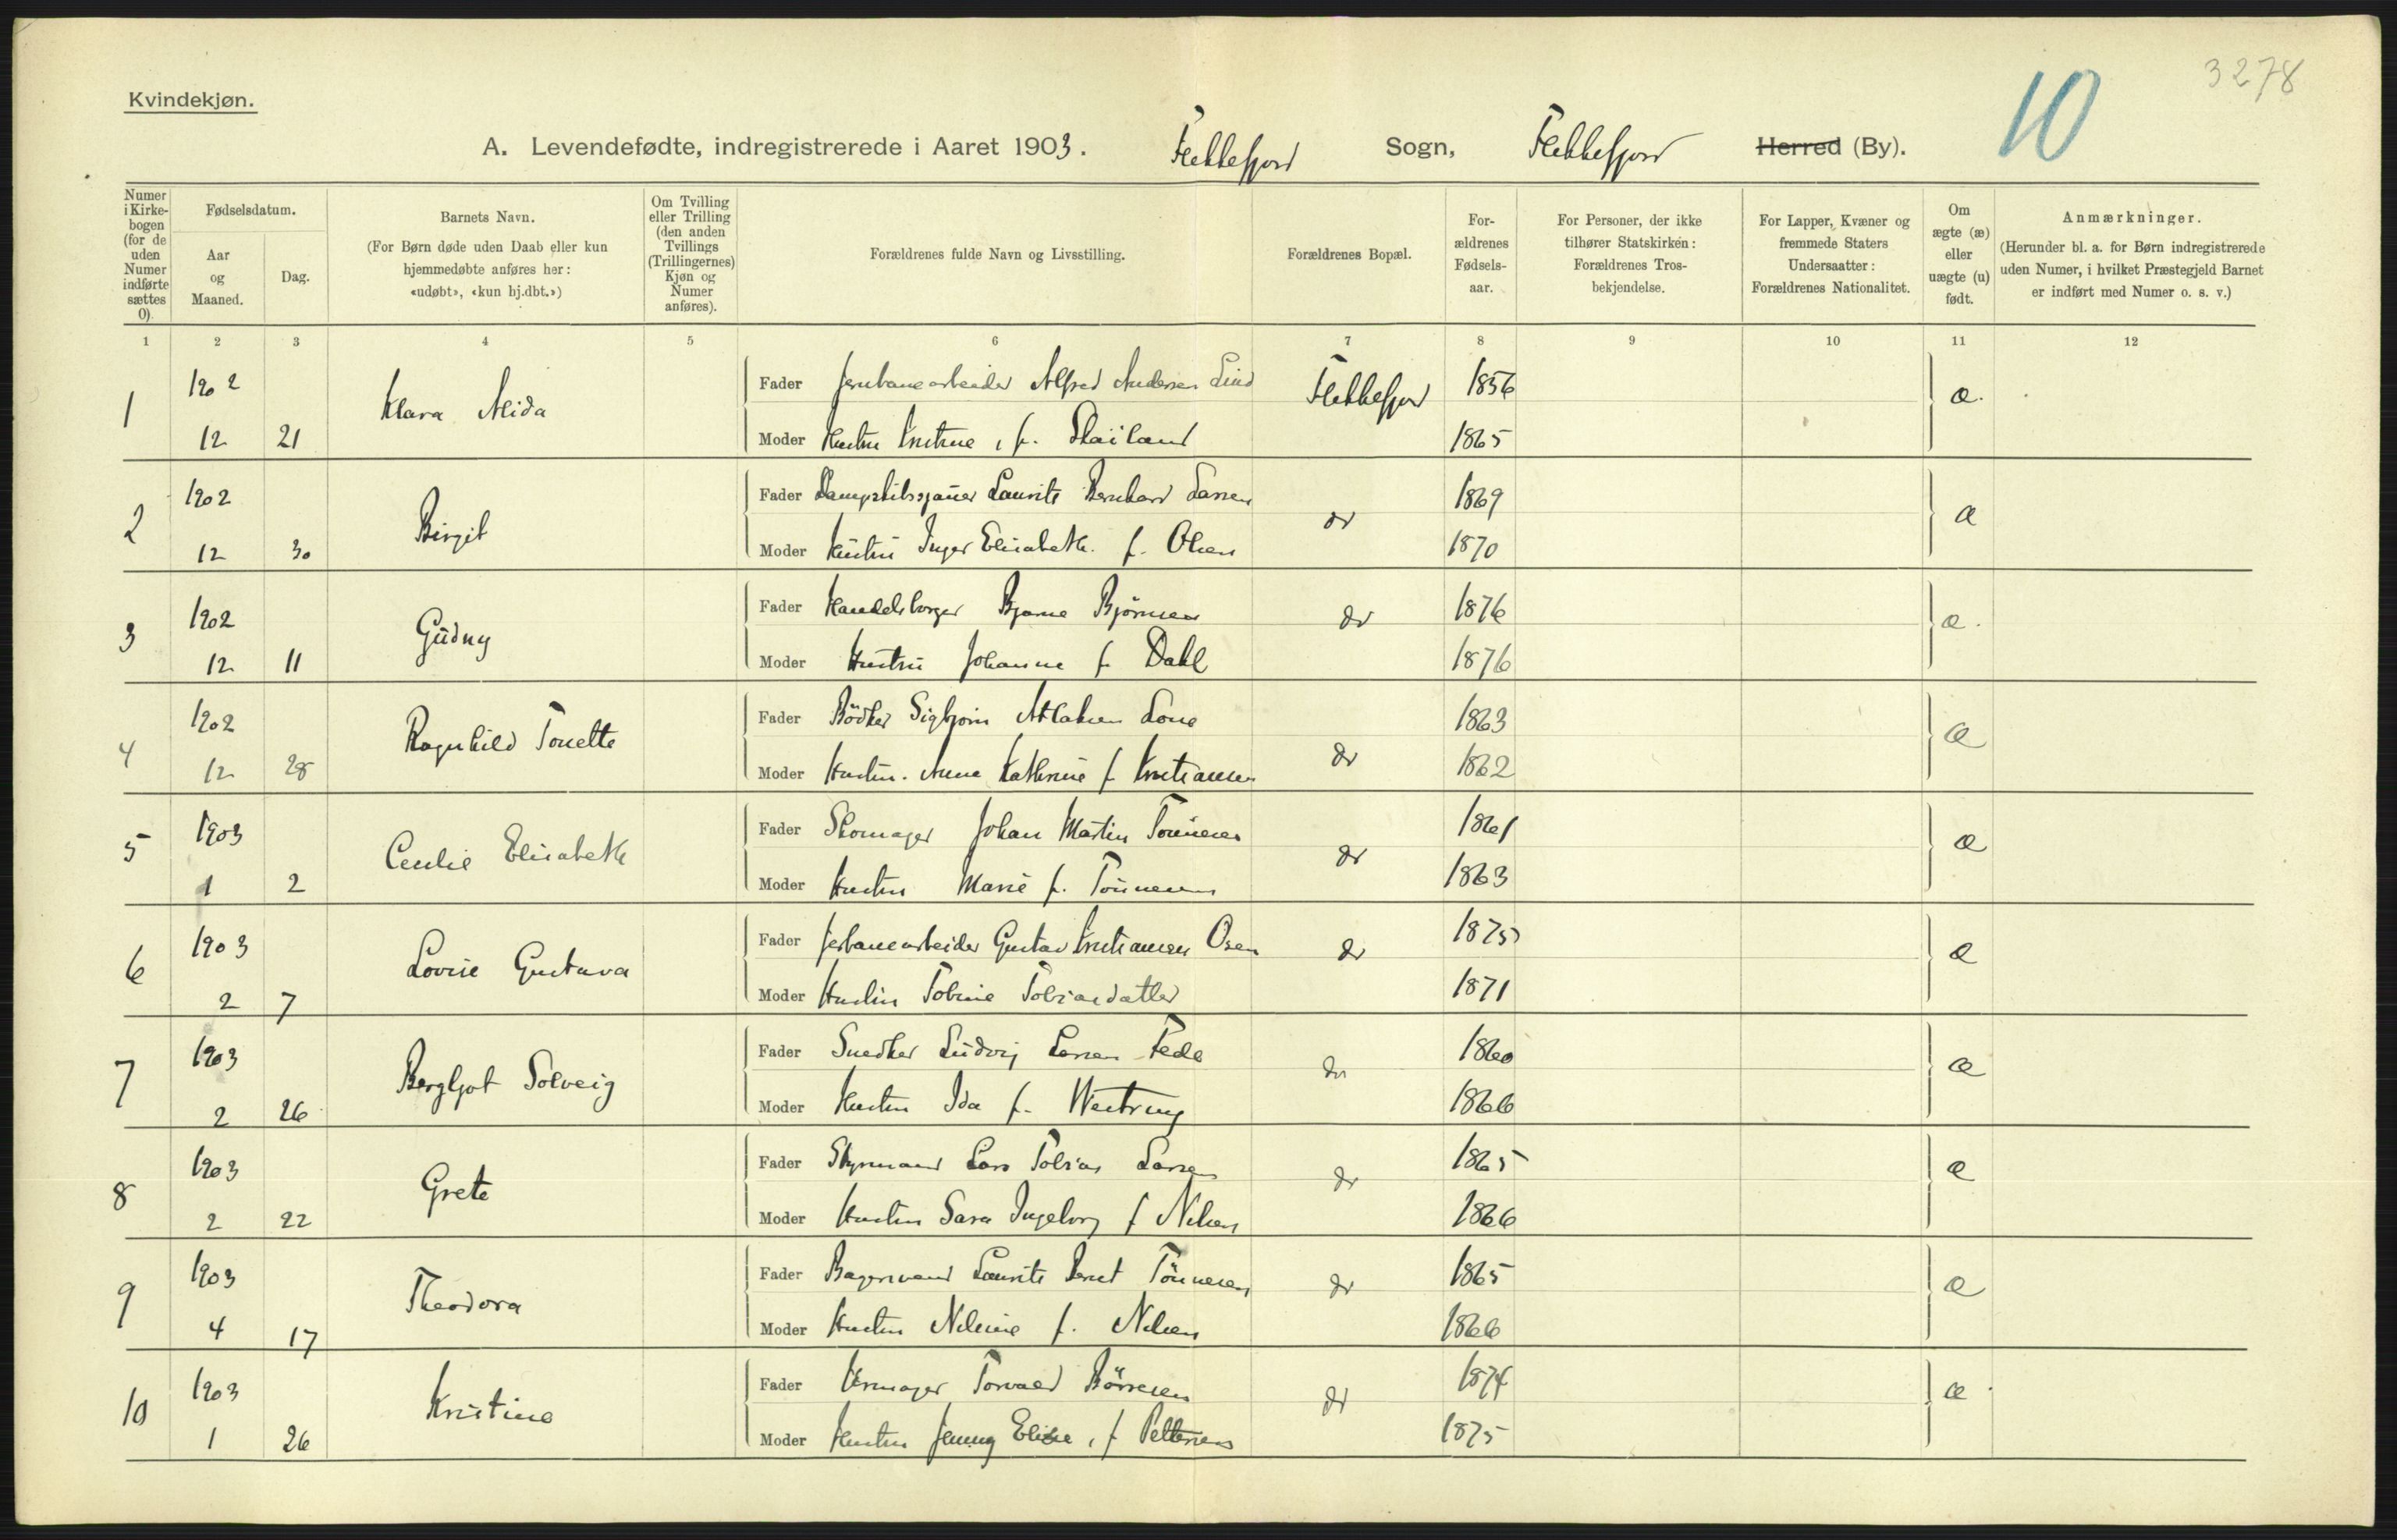 3278
10
Kvindekjøn.
A. Levendefødte, indregistrerede i Aaret 1903. Flekkefjord Sogn, Flekkefjord Herred (By).
Numer i Kirkebogen (for de uden Numer indførte sættes 0).
Fødselsdatum.
Aar og Maaned.
Dag.
Barnets Navn.
(For Børn døde uden Daab eller kun hjemmedøbte anføres her: «udøbt», «kun hj.dbt.»)
Om Tvilling eller Trilling (den anden Tvillings (Trillingernes) Kjøn og Numer anføres).
Forældrenes fulde Navn og Livsstilling.
Forældrenes Bopæl.
Forældrenes Fødselsaar.
For Personer, der ikke tilhører Statskirken: Forældrenes Trosbekjendelse.
For Lapper, Kvæner og fremmede Staters Undersaatter: Forældrenes Nationalitet.
Om ægte (æ) eller uægte (u) født.
Anmærkninger.
(Herunder bl. a. for Børn indregistrerede uden Numer, i hvilket Præstegjeld Barnet er indført med Numer o. s. v.)
1 2 3 4 5 6 7 8 9 10 11 12
1 1902 12 21 Klara Alida
Fader Jernbanearbeider Alfred Andersen Lind Flekkefjord 1856 æ.
Moder Hustru Kristine, f. Skailand 1865
2 1902 12 30 Birgit
Fader Laurits Bernhard Larsen do 1869 æ
Moder Hustru Inger Elisabeth. f. Olsen 1870
3 1902 12 11 Gudny
Fader Handelsborger Bjarne Björnsen do 1876 æ.
Moder Hustru Johanne f. Dahl 1876
4 1902 12 28 Ragnhild Tonette
Fader Bödker Sigbjørn Lone do 1863 æ
Moder Hustru. Anne Kathrine f. Kristiansen 1862
5 1903 1 2 Cecilie Elisabeth
Fader Skomager Johan Martin Tönnesen do 1861 æ
Moder Hustru Marie f. Tönnesen 1863
6 1903 2 7 Lovise Gustava
Fader Jerbanearbeider Gustav Kristiansen Osen do 1875 æ
Moder Hustru Tobine Tobiasdatter 1871
7 1903 2 26 Bergljot Solveig
Fader Snedker Ludvig Larsen Fede do 1860 æ
Moder Hustru Ida f. 1866
8 1903 2 22 Grete
Fader Styrmand Lars Tobias Larsen do 1865 æ
Moder Hustru Sara Ingeborg f Nilsen 1866
9 1903 4 17 Theodora
Fader Laurits Bernt Tönnesen do 1865 æ
Moder Hustru Nilsine f. Nilsen 1866
10 1903 1 26 Kristine
Fader Urmager Torvald Börresen do 1874 æ
Moder Hustru Jenny Elise, f Pettersen 1875